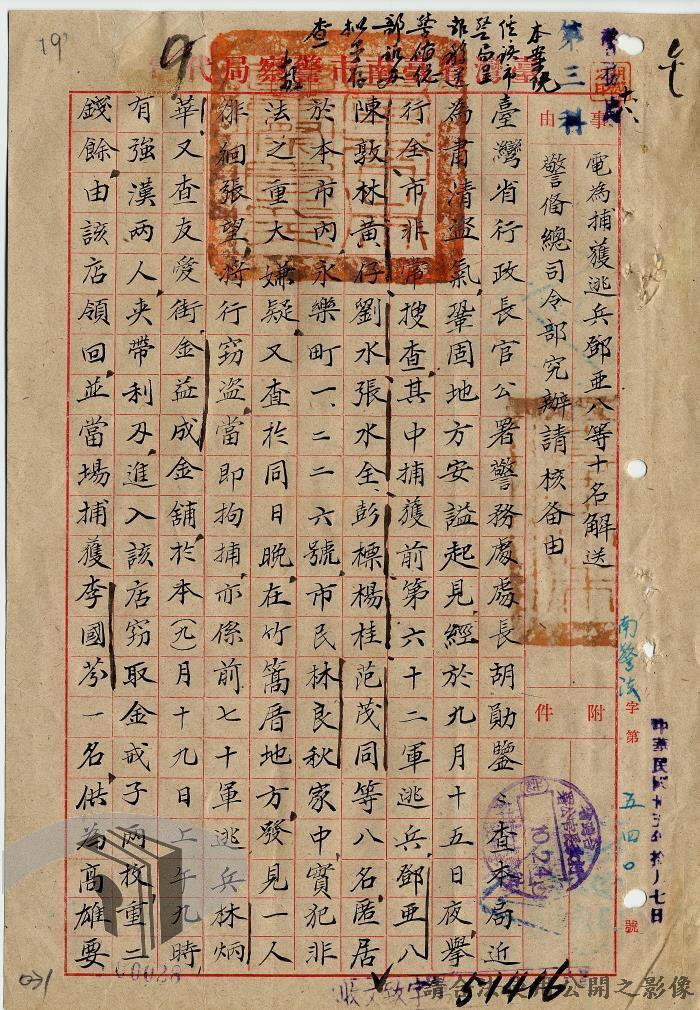 臺灣省臺南市警察局代電
事由
電為捕獲逃兵鄧亞八等十名解送
警備總司令部究辦請核备由
附件
南警法字第五四〇號
中華民國卅五年拾月七日
臺灣省行政長官公署警務處處長胡勛鑒查本局近
為肅清盜氣鞏固地方安謐起見經於九月十五日夜舉
行全市非常搜查其中捕獲前第六十二軍逃兵鄧亜八
陳敦林黃仔劉水張水全彭標楊桂范茂同等八名匿居
於本市內永樂町一、二二六號市民林良秋家中實犯非
法之重大嫌疑又查於同日晚在竹篙厝地方發見一人
徘徊張望將行竊盜當即拘捕亦係前七十軍逃兵林炳
華又查友愛街金益成金舖於本(九)月十九日上午九時
有強漢兩人夾帶利刃進入該店竊取金戒子兩枚重二
錢餘由該店領回並當場捕獲李國芬一名供為高雄要
第三科
本案究
查
19
9
收文致字
51416
請合法使用公開之影像